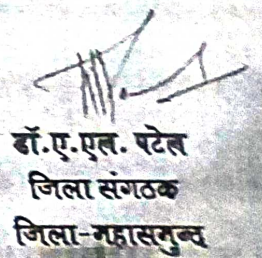 डॉ.ए.एल. पटेल
जिला संगठक
जिला-महासमुन्द